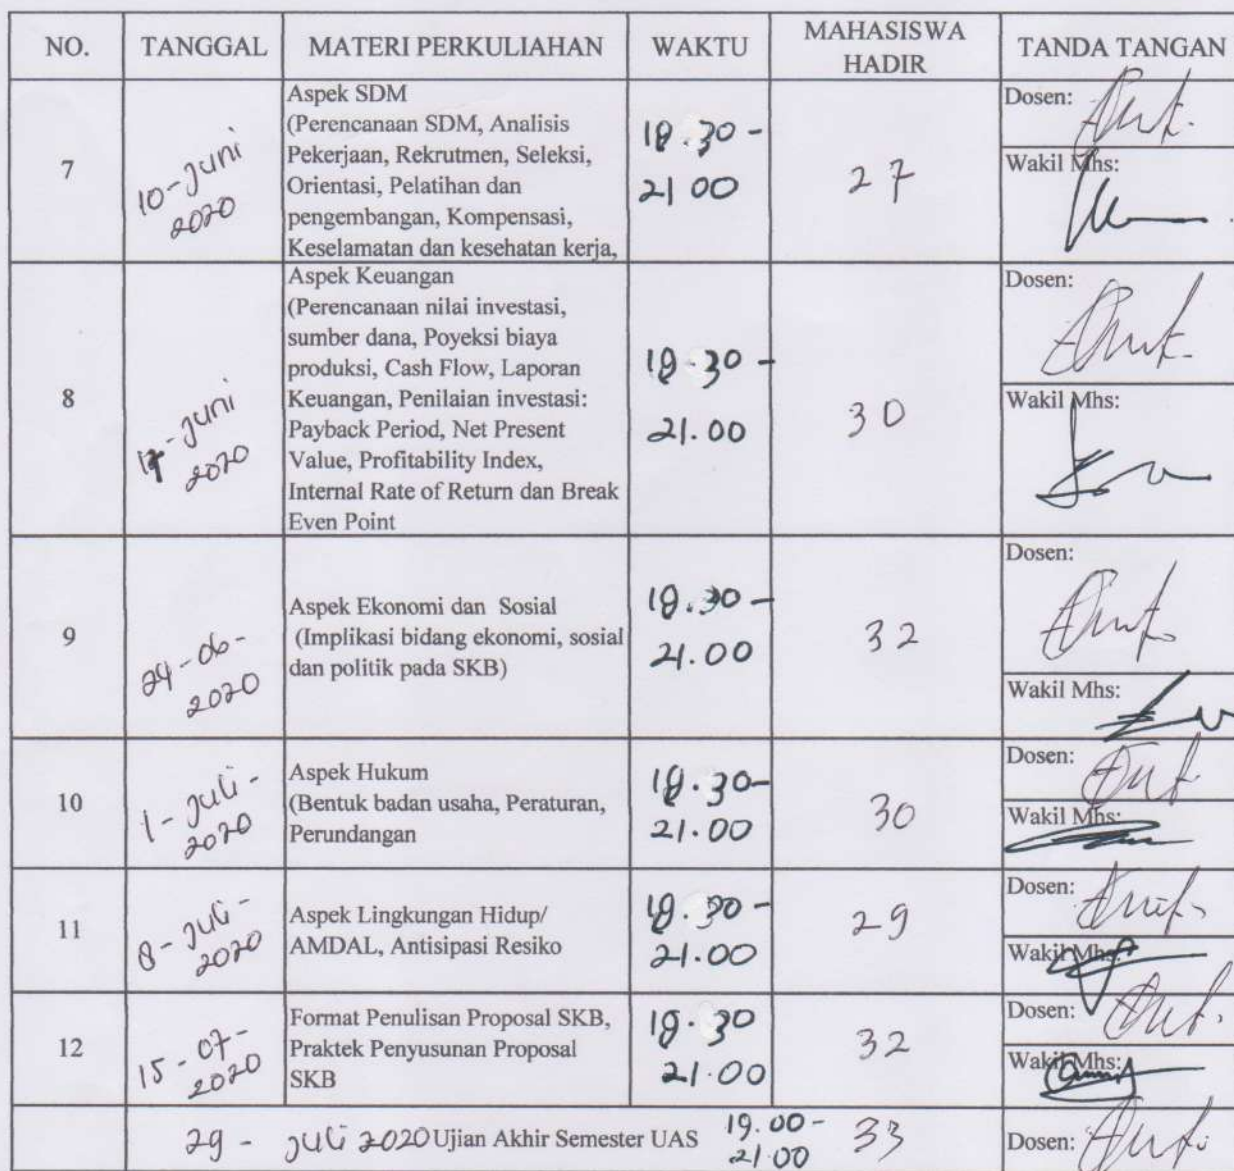 NO. TANGGAL MATERI PERKULIAHAN WAKTU MAHASISWA HADIR TANDA TANGAN
7
10-Juni
2020
Aspek SDM
(Perencanaan SDM, Analisis
Pekerjaan, Rekrutmen, Seleksi,
Orientasi, Pelatihan dan
pengembangan, Kompensasi,
Keselamatan dan kesehatan kerja,
21 00
27
Dosen:
Wakil Mhs:
8
17-Juni
2020
Aspek Keuangan
(Perencanaan nilai investasi,
sumber dana, Poyeksi biaya
produksi, Cash Flow, Laporan
Keuangan, Penilaian investasi:
Payback Period, Net Present
Value, Profitability Index,
Internal Rate of Return dan Break
Even Point
21.00
30
Dosen:
Wakil Mhs:
9
24-06-
2020
Aspek Ekonomi dan Sosial
(Implikasi bidang ekonomi, sosial
dan politik pada SKB)
21.00
32
Dosen:
Wakil Mhs:
10
1-Juli-
2020
Aspek Hukum
(Bentuk badan usaha, Peraturan,
Perundangan
21.00
30
Dosen:
Wakil Mhs:
11
8-Juli-
2020
Aspek Lingkungan Hidup/
AMDAL, Antisipasi Resiko
21.00
29
Dosen:
Wakil Mhs:
12
15-07-
2020
Format Penulisan Proposal SKB,
Praktek Penyusunan Proposal
SKB
21.00
32
Dosen:
Wakil Mhs:
29- Juli 2020 Ujian Akhir Semester UAS
19.00-
21.00
33
Dosen: